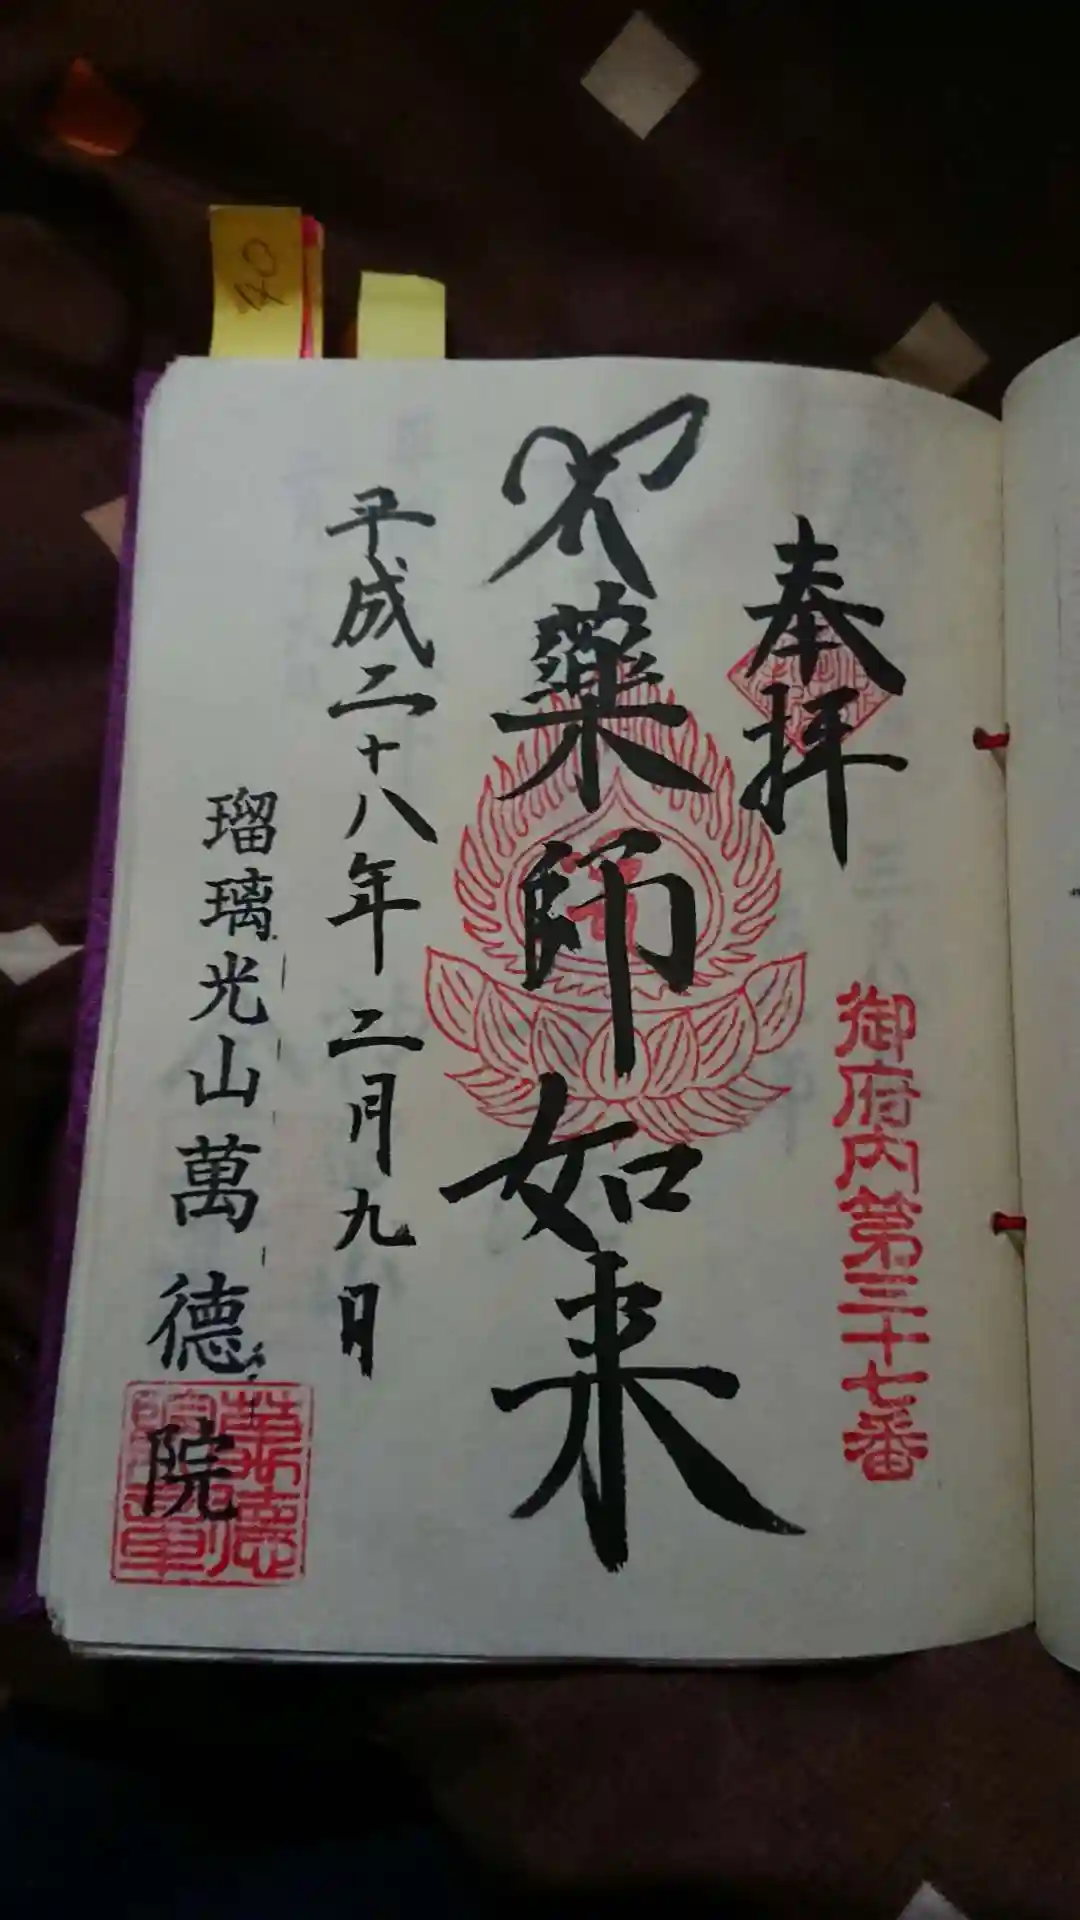 奉拝
御府内第三十七番
薬師如来
平成二十八年二月九日
瑠璃光山萬德院
40